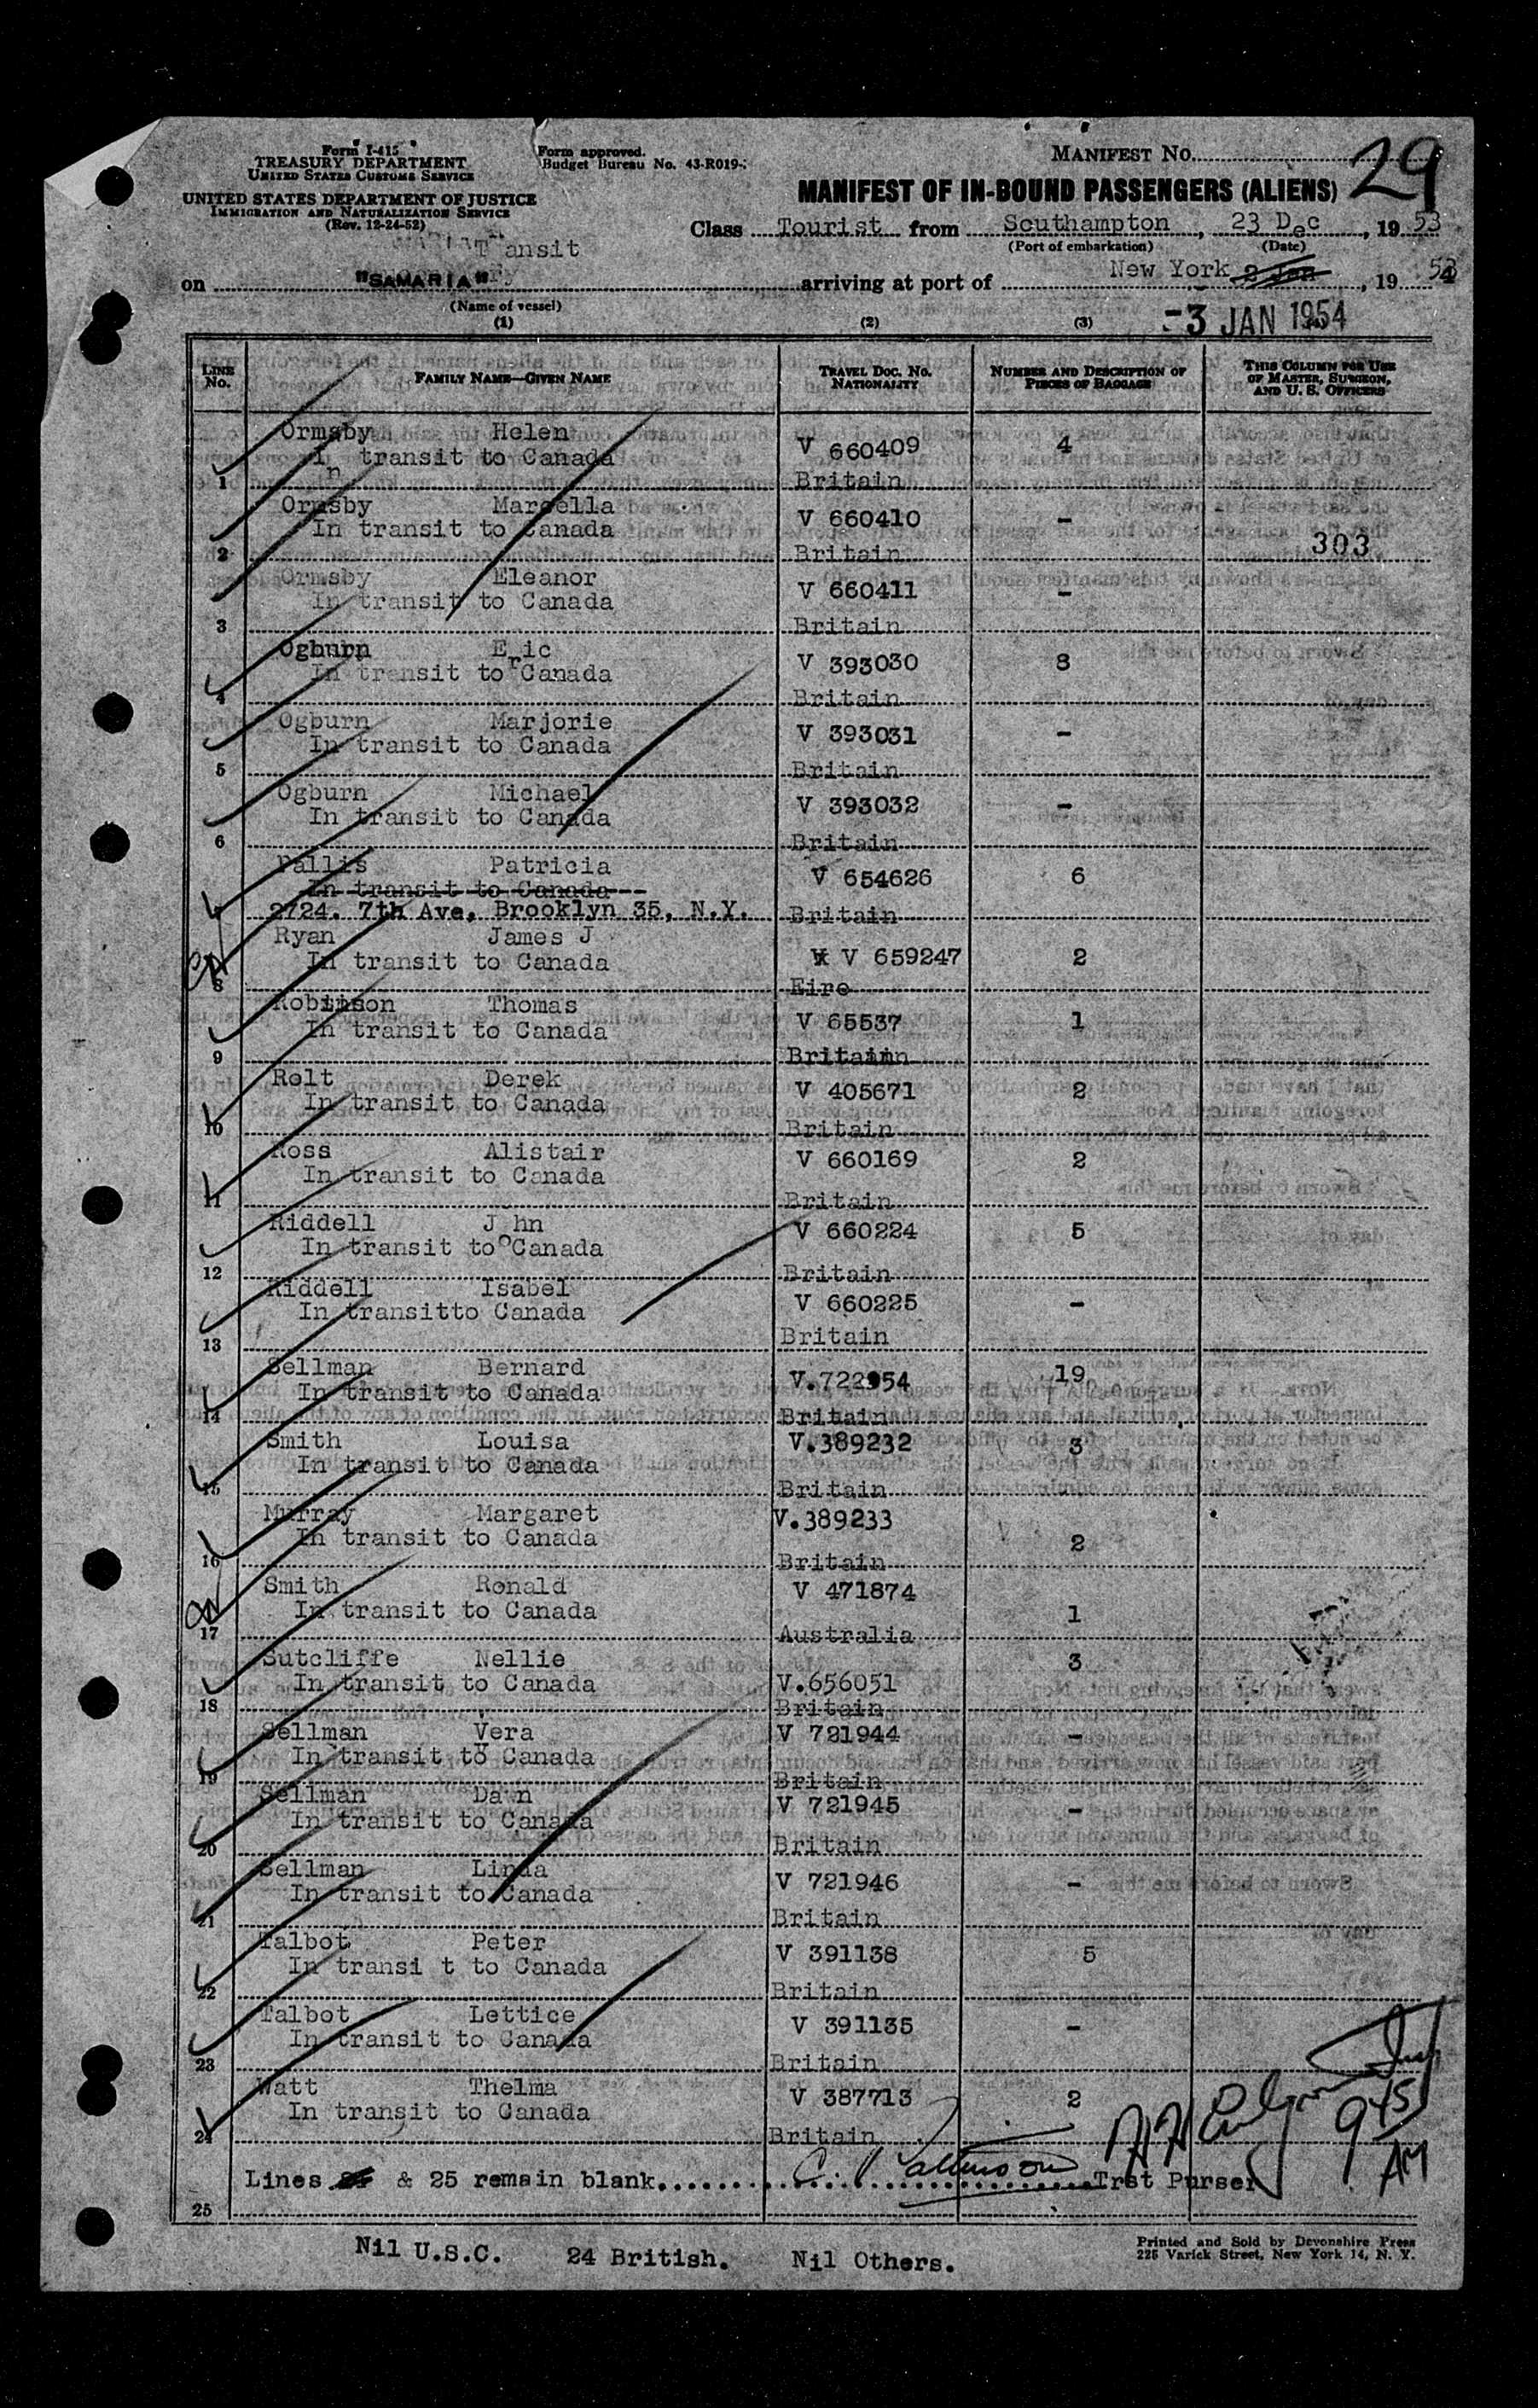 Form I-415
TREASURY DEPARTMENT
UNITED STATES CUSTOMS SERVICE
UNITED STATES DEPARTMENT OF JUSTICE
IMMIGRATION AND NATURALIZATION SERVICE
(Rev. 12-24-52)
Form approved.
Budget Bureau No. 43-R019-
MANIFEST NO. 29
MANIFEST OF IN-BOUND PASSENGERS (ALIENS)
Class Tourist from Southampton, 23 Dec, 1953
(Port of embarkation) (Date)
T ansit
on "SAMARIA" arriving at port of New York 2 Jan, 19 54
(Name of vessel)
-3 JAN 1954
(1) (2) (3)
LINE NO. FAMILY NAME—GIVEN NAME TRAVEL DOC. NO. NATIONALITY NUMBER AND DESCRIPTION OF PIECES OF BAGGAGE THIS COLUMN FOR USE OF MASTER, SURGEON, AND U. S. OFFICERS
Ormsby Helen V 660409 4
In transit to Canada
1 Britain
Ormsby Marcella V 660410 -
In transit to Canada
2 Britain 303
Ormsby Eleanor V 660411 -
In transit to Canada
3 Britain
Ogburn Eric V 393030 8
In transit to Canada
4 Britain
Ogburn Marjorie V 393031 -
In transit to Canada
5 Britain
Ogburn Michael V 393032 -
In transit to Canada
6 Britain
Pallis Patricia V 654626 6
In transit to Canada
2724. 7th Ave, Brooklyn 35, N.Y. Britain
Ryan James J V 659247 2
In transit to Canada
8 Eire
Robinson Thomas V 65537 1
In transit to Canada
9 Britainn
Rolt Derek V 405671 2
In transit to Canada
10 Britain
Ross Alistair V 660169 2
In transit to Canada
11 Britain
Riddell John V 660224 5
In transit to Canada
12 Britain
Riddell Isabel V 660225 -
In transitto Canada
13 Britain
Sellman Bernard V.722954 19
In transit to Canada
14 Britain
Smith Louisa V.389232 3
In transit to Canada
15 Britain
Murray Margaret V.389233
In transit to Canada 2
16 Britain
Smith Ronald V 471874
In transit to Canada 1
17 Australia
Sutcliffe Nellie 3
In transit to Canada V.656051
18 Britain
Sellman Vera V 721944 -
In transit to Canada
19 Britain
Sellman Dawn V 721945 -
In transit to Canada
20 Britain
Sellman Linda V 721946 -
In transit to Canada
21 Britain
Talbot Peter V 391138 5
In transi t to Canada
22 Britain
Talbot Lettice V 391135 -
In transit to Canada
23 Britain
Watt Thelma V 387713 2
In transit to Canada
24 Britain
945 AM
Lines & 25 remain blank Trst Purser
25
Nil U.S.C. 24 British. Nil Others.
Printed and Sold by Devonshire Press
225 Varick Street, New York 14, N. Y.